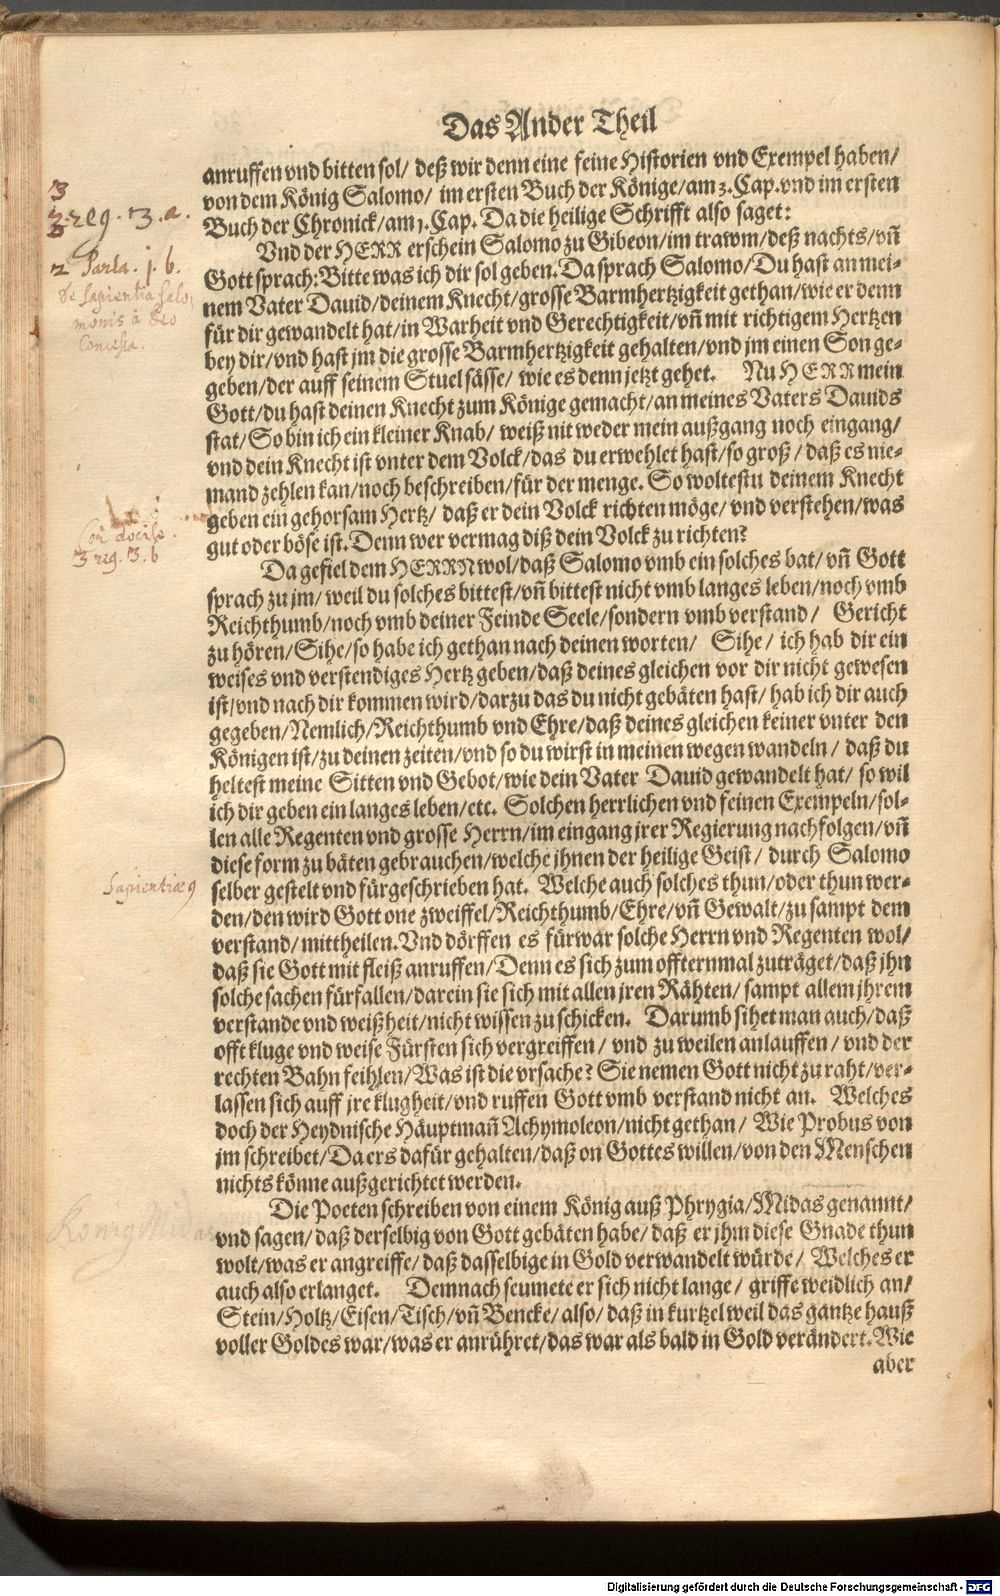 Das Ander Theil
anruffen vnd bitten sol/ deß wir denn eine feine Historien vnd Exempel haben/
von dem König Salomo/ im ersten Buch der Könige/am 3.Cap.vnd im ersten
Buch der Chronick/am 1.Cap. Da die heilige Schrifft also saget:
Vnd der HERR erschein Salomo zu Gibeon/im trawm/deß nachts/vñ
Gott sprach: Bitte was ich dir sol geben. Da sprach Salomo/Du hast an mei-
nem Vater Dauid/deinem Knecht/grosse Barmhertzigkeit gethan/wie er denn
für dir gewandelt hat/in Warheit vnd Gerechtigkeit/vñ mit richtigem Hertzen
bey dir/vnd hast jm die grosse Barmhertzigkeit gehalten/vnd jm einen Son ge-
geben/der auff seinem Stuel sässe/ wie es denn jetzt gehet. Nu HERR mein
Gott/du hast deinen Knecht zum Könige gemacht/an meines Vaters Dauids
stat/So bin ich ein kleiner Knab/ weiß nit weder mein außgang noch eingang/
vnd dein Knecht ist vnter dem Volck/das du erwehlet hast/so groß/ daß es nie-
mand zehlen kan/noch beschreiben/für der menge. So woltestu deinem Knecht
geben ein gehorsam Hertz/ daß er dein Volck richten möge/ vnd verstehen/was
gut oder böse ist. Denn wer vermag diß dein Volck zu richten?
Da gefiel dem HERRN wol/daß Salomo vmb ein solches bat/ vñ Gott
sprach zu jm/ weil du solches bittest/vñ bittest nicht vmb langes leben/noch vmb
Reichthumb/noch vmb deiner Feinde Seele/sondern vmb verstand/ Gericht
zu hören/Sihe/so habe ich gethan nach deinen worten/ Sihe/ ich hab dir ein
weises vnd verstendiges Hertz geben/daß deines gleichen vor dir nicht gewesen
ist/vnd nach dir kommen wird/darzu das du nicht gebäten hast/ hab ich dir auch
gegeben/Nemlich/Reichthumb vnd Ehre/daß deines gleichen keiner vnter den
Königen ist/zu deinen zeiten/vnd so du wirst in meinen wegen wandeln/ daß du
heltest meine Sitten vnd Gebot/wie dein Vater Dauid gewandelt hat/ so wil
ich dir geben ein langes leben/etc. Solchen herrlichen vnd feinen Exempeln/sol-
len alle Regenten vnd grosse Herrn/im eingang jrer Regierung nachfolgen/vñ
diese form zu bäten gebrauchen/welche jhnen der heilige Geist/ durch Salomo
selber gestelt vnd fürgeschrieben hat. Welche auch solches thun/oder thun wer-
den/den wird Gott one zweiffel/Reichthumb/Ehre/vñ Gewalt/zu sampt dem
verstand/mittheilen. Vnd dörffen es fürwar solche Herrn vnd Regenten wol/
daß sie Gott mit fleiß anruffen/Denn es sich zum offternmal zuträget/daß jhn
solche sachen fürfallen/darein sie sich mit allen jren Rähten/ sampt allem jhrem
verstande vnd weißheit/nicht wissen zu schicken. Darumb sihet man auch/daß
offt kluge vnd weise Fürsten sich vergreiffen/ vnd zu weilen anlauffen/ vnd der
rechten Bahn feihlen/Was ist die vrsache? Sie nemen Gott nicht zu raht/ver-
lassen sich auff jre klugheit/vnd ruffen Gott vmb verstand nicht an. Welches
doch der Heydnische Häuptmañ Achymoleon/nicht gethan/ Wie Probus von
jm schreibet/Da ers dafür gehalten/daß on Gottes willen/von den Menschen
nichts könne außgerichtet werden.
Die Poeten schreiben von einem König auß Phrygia/Midas genannt/
vnd sagen/daß derselbig von Gott gebäten habe/daß er jhm diese Gnade thun
wolt/was er angreiffe/daß dasselbige in Gold verwandelt würde/ Welches er
auch also erlanget. Demnach seumete er sich nicht lange/ griffe weidlich an/
Stein/Holtz/Eisen/Tisch/vñ Bencke/also/daß in kurtzel weil das gantze hauß
voller Goldes war/was er anrühret/das war als bald in Gold verändert. Wie
aber
3
3 reg. 3. a.
2 Parla. j. b.
de sapientia Salo
monis à deo
Concessa.
Cor docile.
3 reg. 3. b
Sapientiæ 9
König Midas
Digitalisierung gefördert durch die Deutsche Forschungsgemeinschaft - DFG